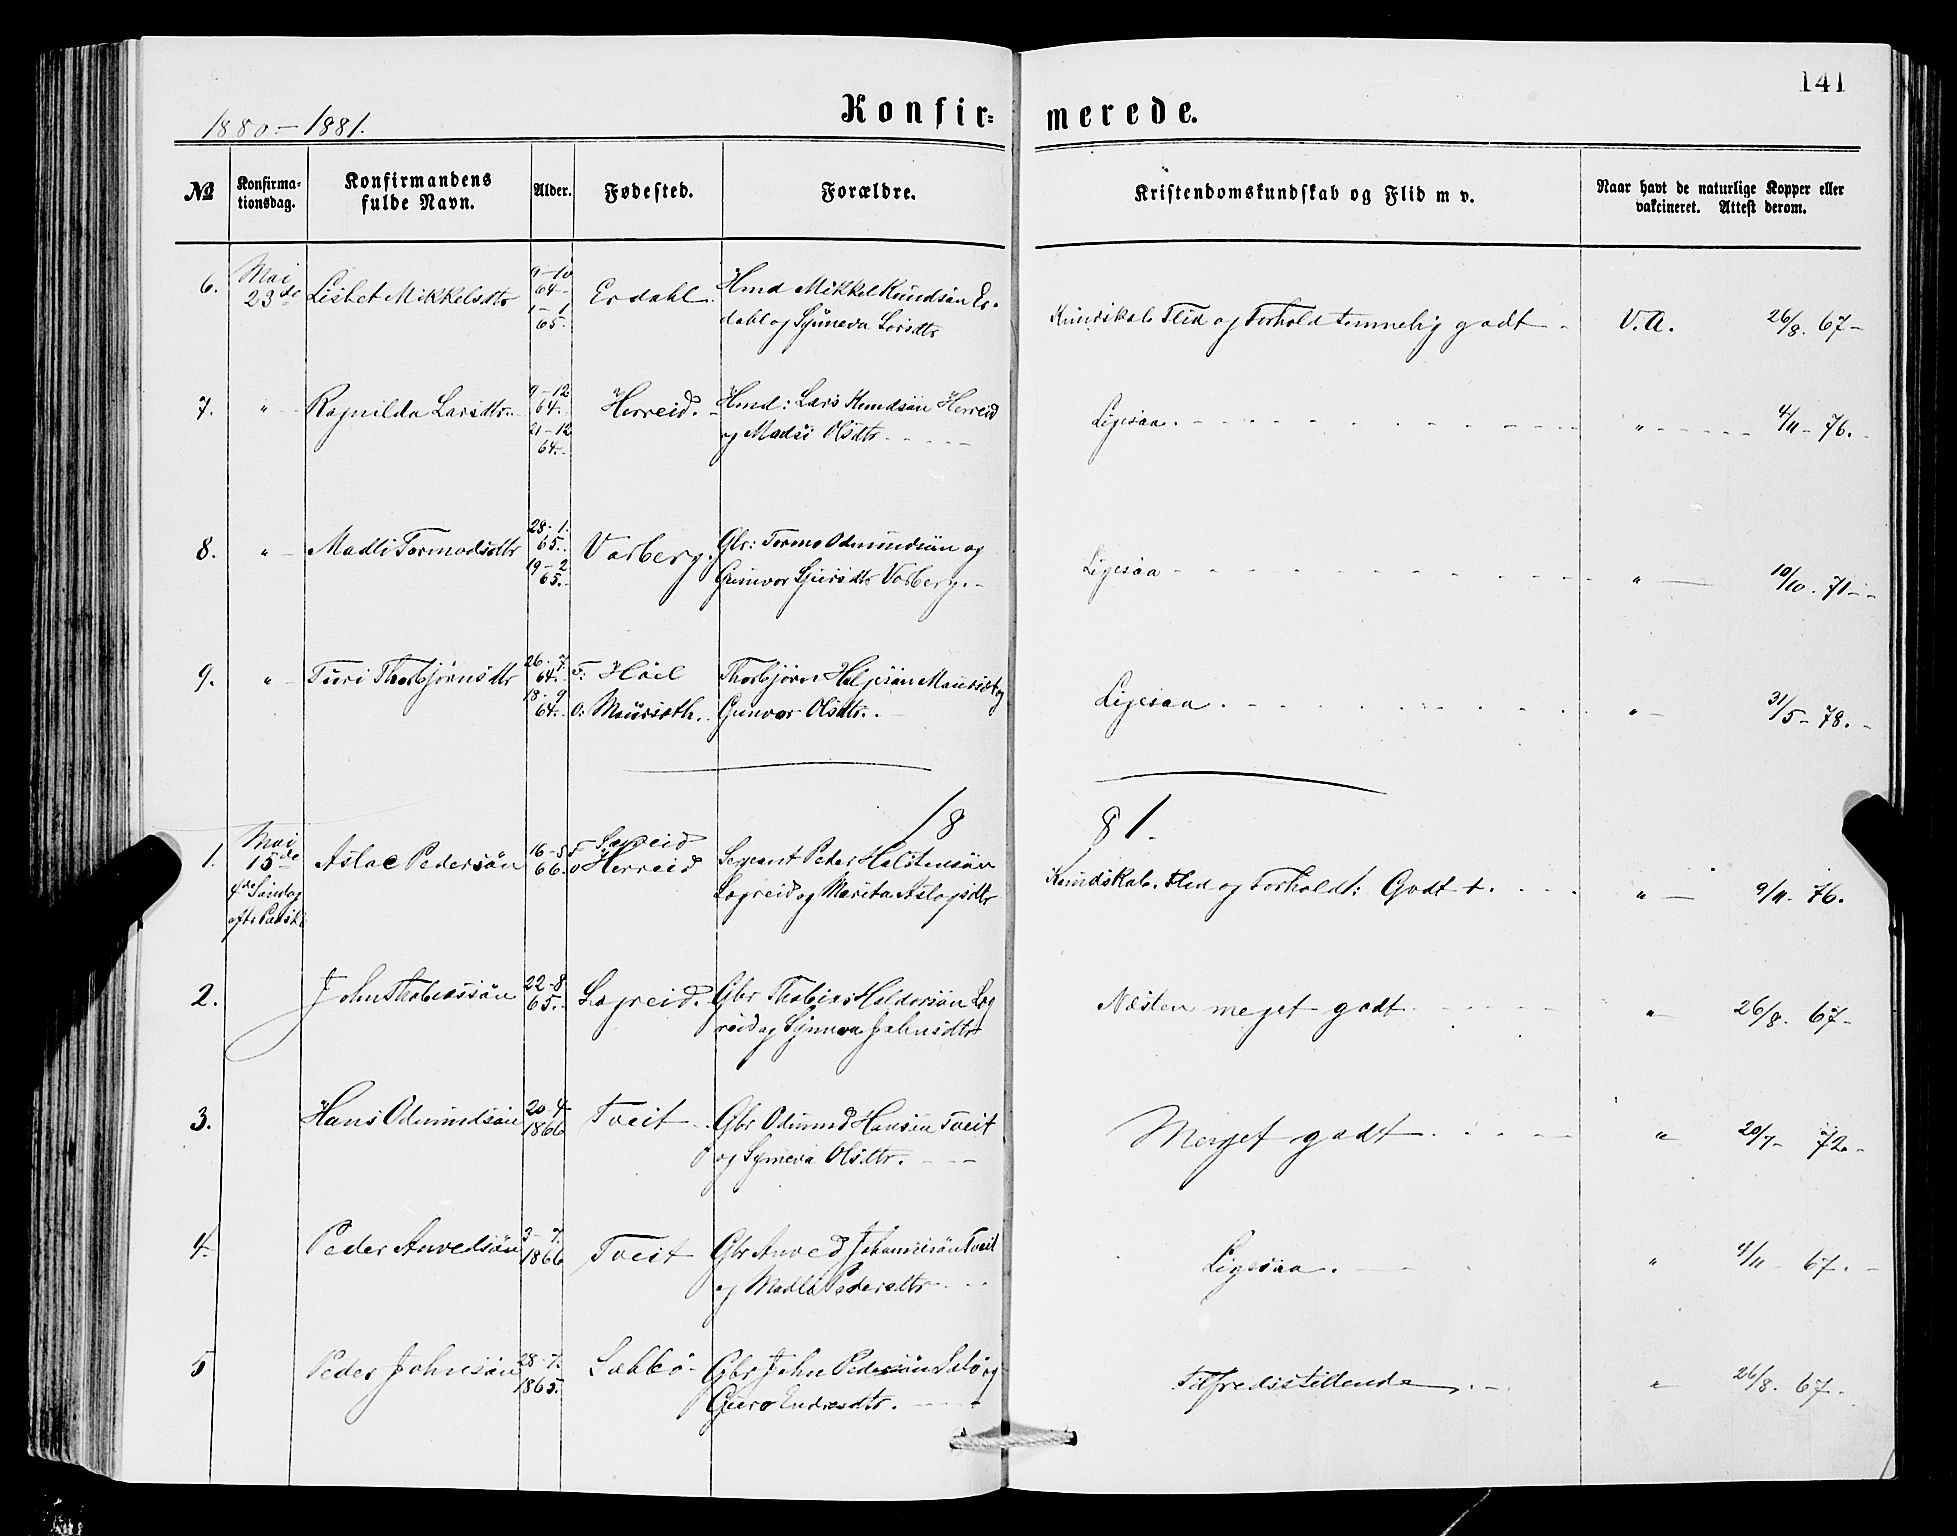 141
1880 - 1881.
Konfir= merede.
№ Konfirma=tionsdag. Konfirmandens fulde Navn. Alder. Fødested. Forældre. Kristendomskundskab og Flid m v. Naar havt de naturlige Kopper eller vakcineret. Attest derom.
6. Mai 23de Lisbet Mikkelsdtr 64 1-1 65. Erdahl. Hmd Mikkel Knudsøn Er-
dahl og Synneva Larsdtr Kundskab Flid og Forhold temmelig godt V.A. 26/8. 67-
7. " Ragnilda Larsdtr. 9-12 64. 21-12 64. Herreid. Hmd: Lars Knudsøn Herreid
og Madsi Olsdtr Ligesaa. " 4/11- 76.
8. " Madli Tormodsdtr 28-1. 65. 19-2 65. Varberg. Gbr: Tormo Odmundsøn og
Gunvor Sjursdtr Varberg. Ligesaa " 10/10. 71-
9. " Turi Thorbjørnsdtr 26-7. 64. 18-9 64. F: Høel
O: Maursæth. Thorbjørn Heljesøn Maursæt og
Gunvor Olsdtr. Ligesaa " 31/5- 78.
18 81.
1. Mai 15de 4de Søndag efter Paaske Aslac Pedersøn 16-5 66. F Lægreid
O Herreid Sergeant Peder Halstensøn
Lægreid og Marita Aslagsdtr Kundskab. Flid og Forhold: Godt +. " 9/11- 76.
2. John Thobiassøn 22-8 65. Lægreid. Gbr Thobias Haldorsøn Læg
reid og Synneva Johnsdtr Næsten meget godt " 26/8. 67-
3. Hans Odmundsøn 20-4 1866 Tveit Gbr Odmund Hansøn Tveit
og Synneva Olsdtr. Meget godt " 20/7- 72.
4. Peder Anvedsøn 3-7. 1866 Tveit Gbr Anved Johannesøn Tveit
og Madli Pedersdtr Ligesaa. " 4/11 67.
5 Peder Johnsøn 28-7. 1865. Sæbbø Gbr John Pedersøn Sæbø og
Guro Endresdtr. Tilfredsstillende " 26/8. 67.